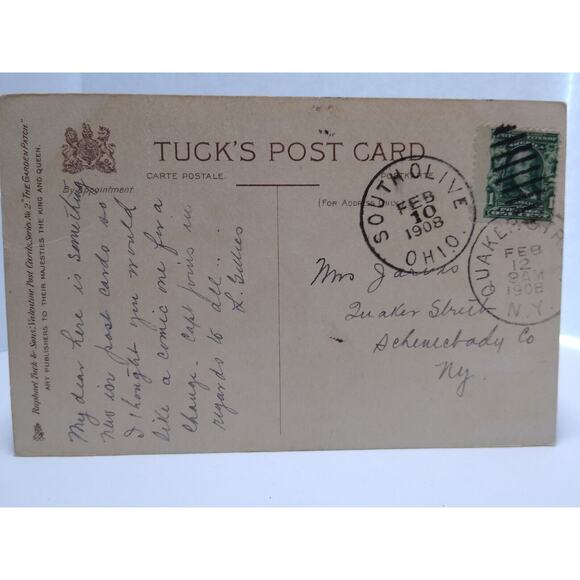 Raphael Tuck & Sons' Valentine Post Cards, Series No. 2, "THE GARDEN PATCH."
ART PUBLISHERS TO THEIR MAJESTIES THE KING AND QUEEN.
By Appointment.
TUCK'S POST CARD
CARTE POSTALE.
POSTKARTE.
(FOR ADDRESS ONLY.)
My dear here is something
new in post cards so
I thought you would
like a comic one for a
change. Capt joins in
regards to all..
L. Gillies
SOUTH OLIVE
FEB
10
1908
OHIO
QUAKER STR
FEB
12
9AM
1908
N.Y.
1 1
Mrs Jarvis
Quaker Street
Schenectady Co
Ny.